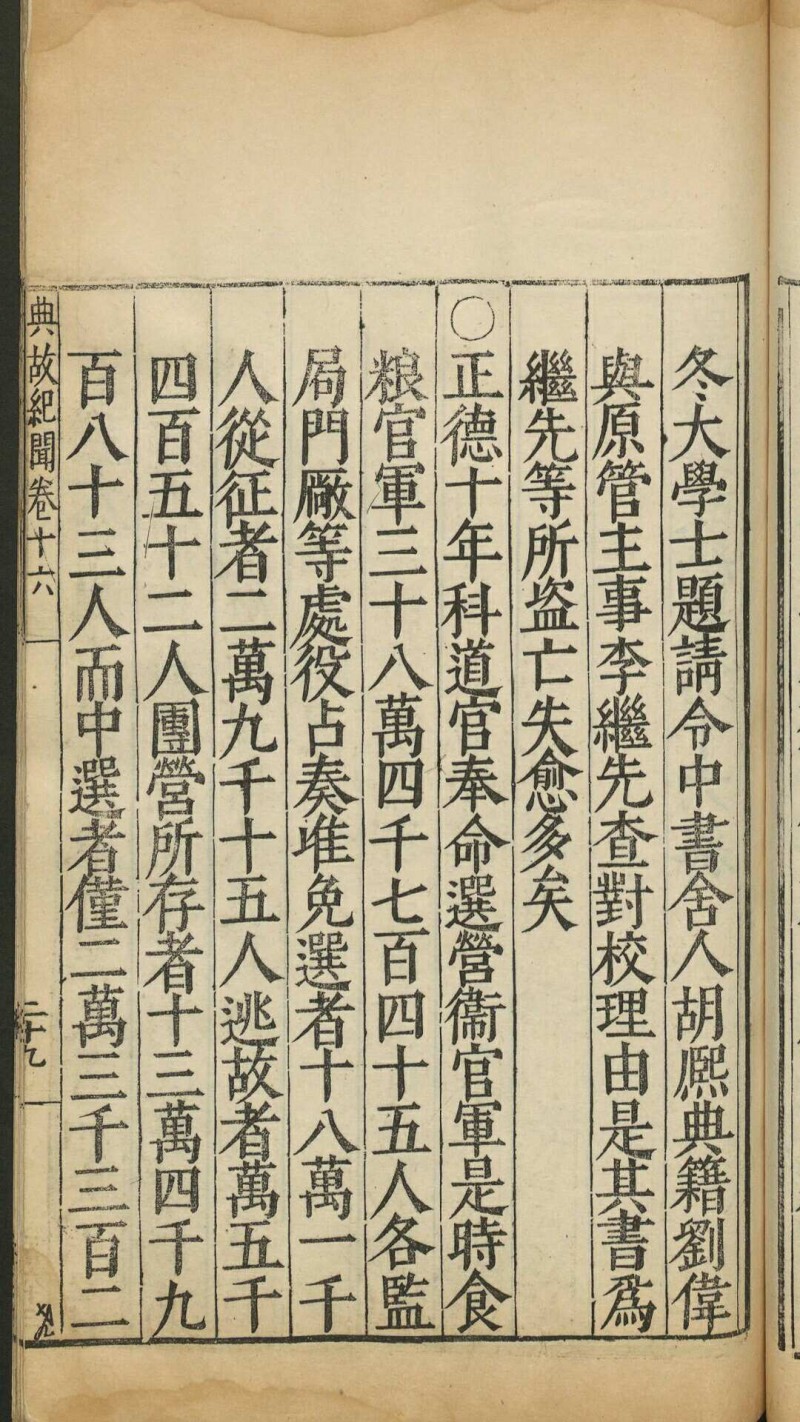 冬大學士題請令中書舍人胡熈典籍劉偉
與原管主事李繼先查對校理由是其書爲
繼先等所盗亡失愈多矣
○正德十年科道官奉命選營衞官軍是時食
粮官軍三十八萬四千七百四十五人各監
局門厰等處役占奏准免選者十八萬一千
人從征者二萬九千十五人逃故者萬五千
四百五十二人團營所存者十三萬四千九
百八十三人而中選者僅二萬三千三百二
典故紀聞卷十六
二十九